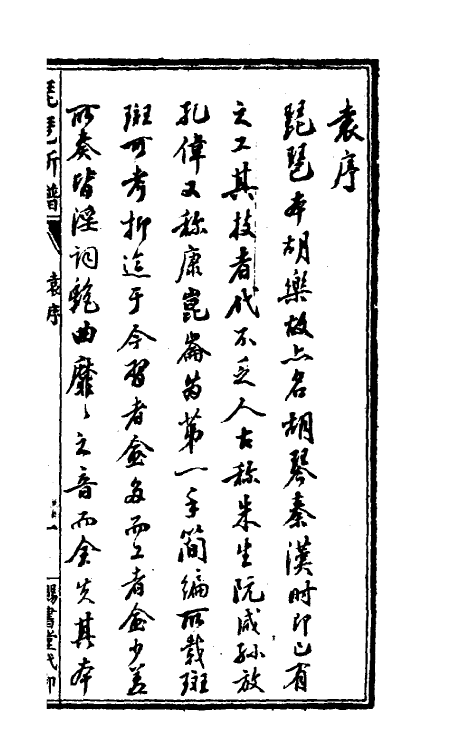 袁序
琵琶本胡樂故亦名胡琴秦漢時即已有
之工其技者代不乏人古称朱生阮咸孫放
孔偉又称康崑崙为第一手简编所载斑
斑可考抑迨于今習者愈多而工者愈少盖
所奏皆淫詞艶曲靡〻之音而全失其本
琵琶新譜
袁序
賜書堂代印